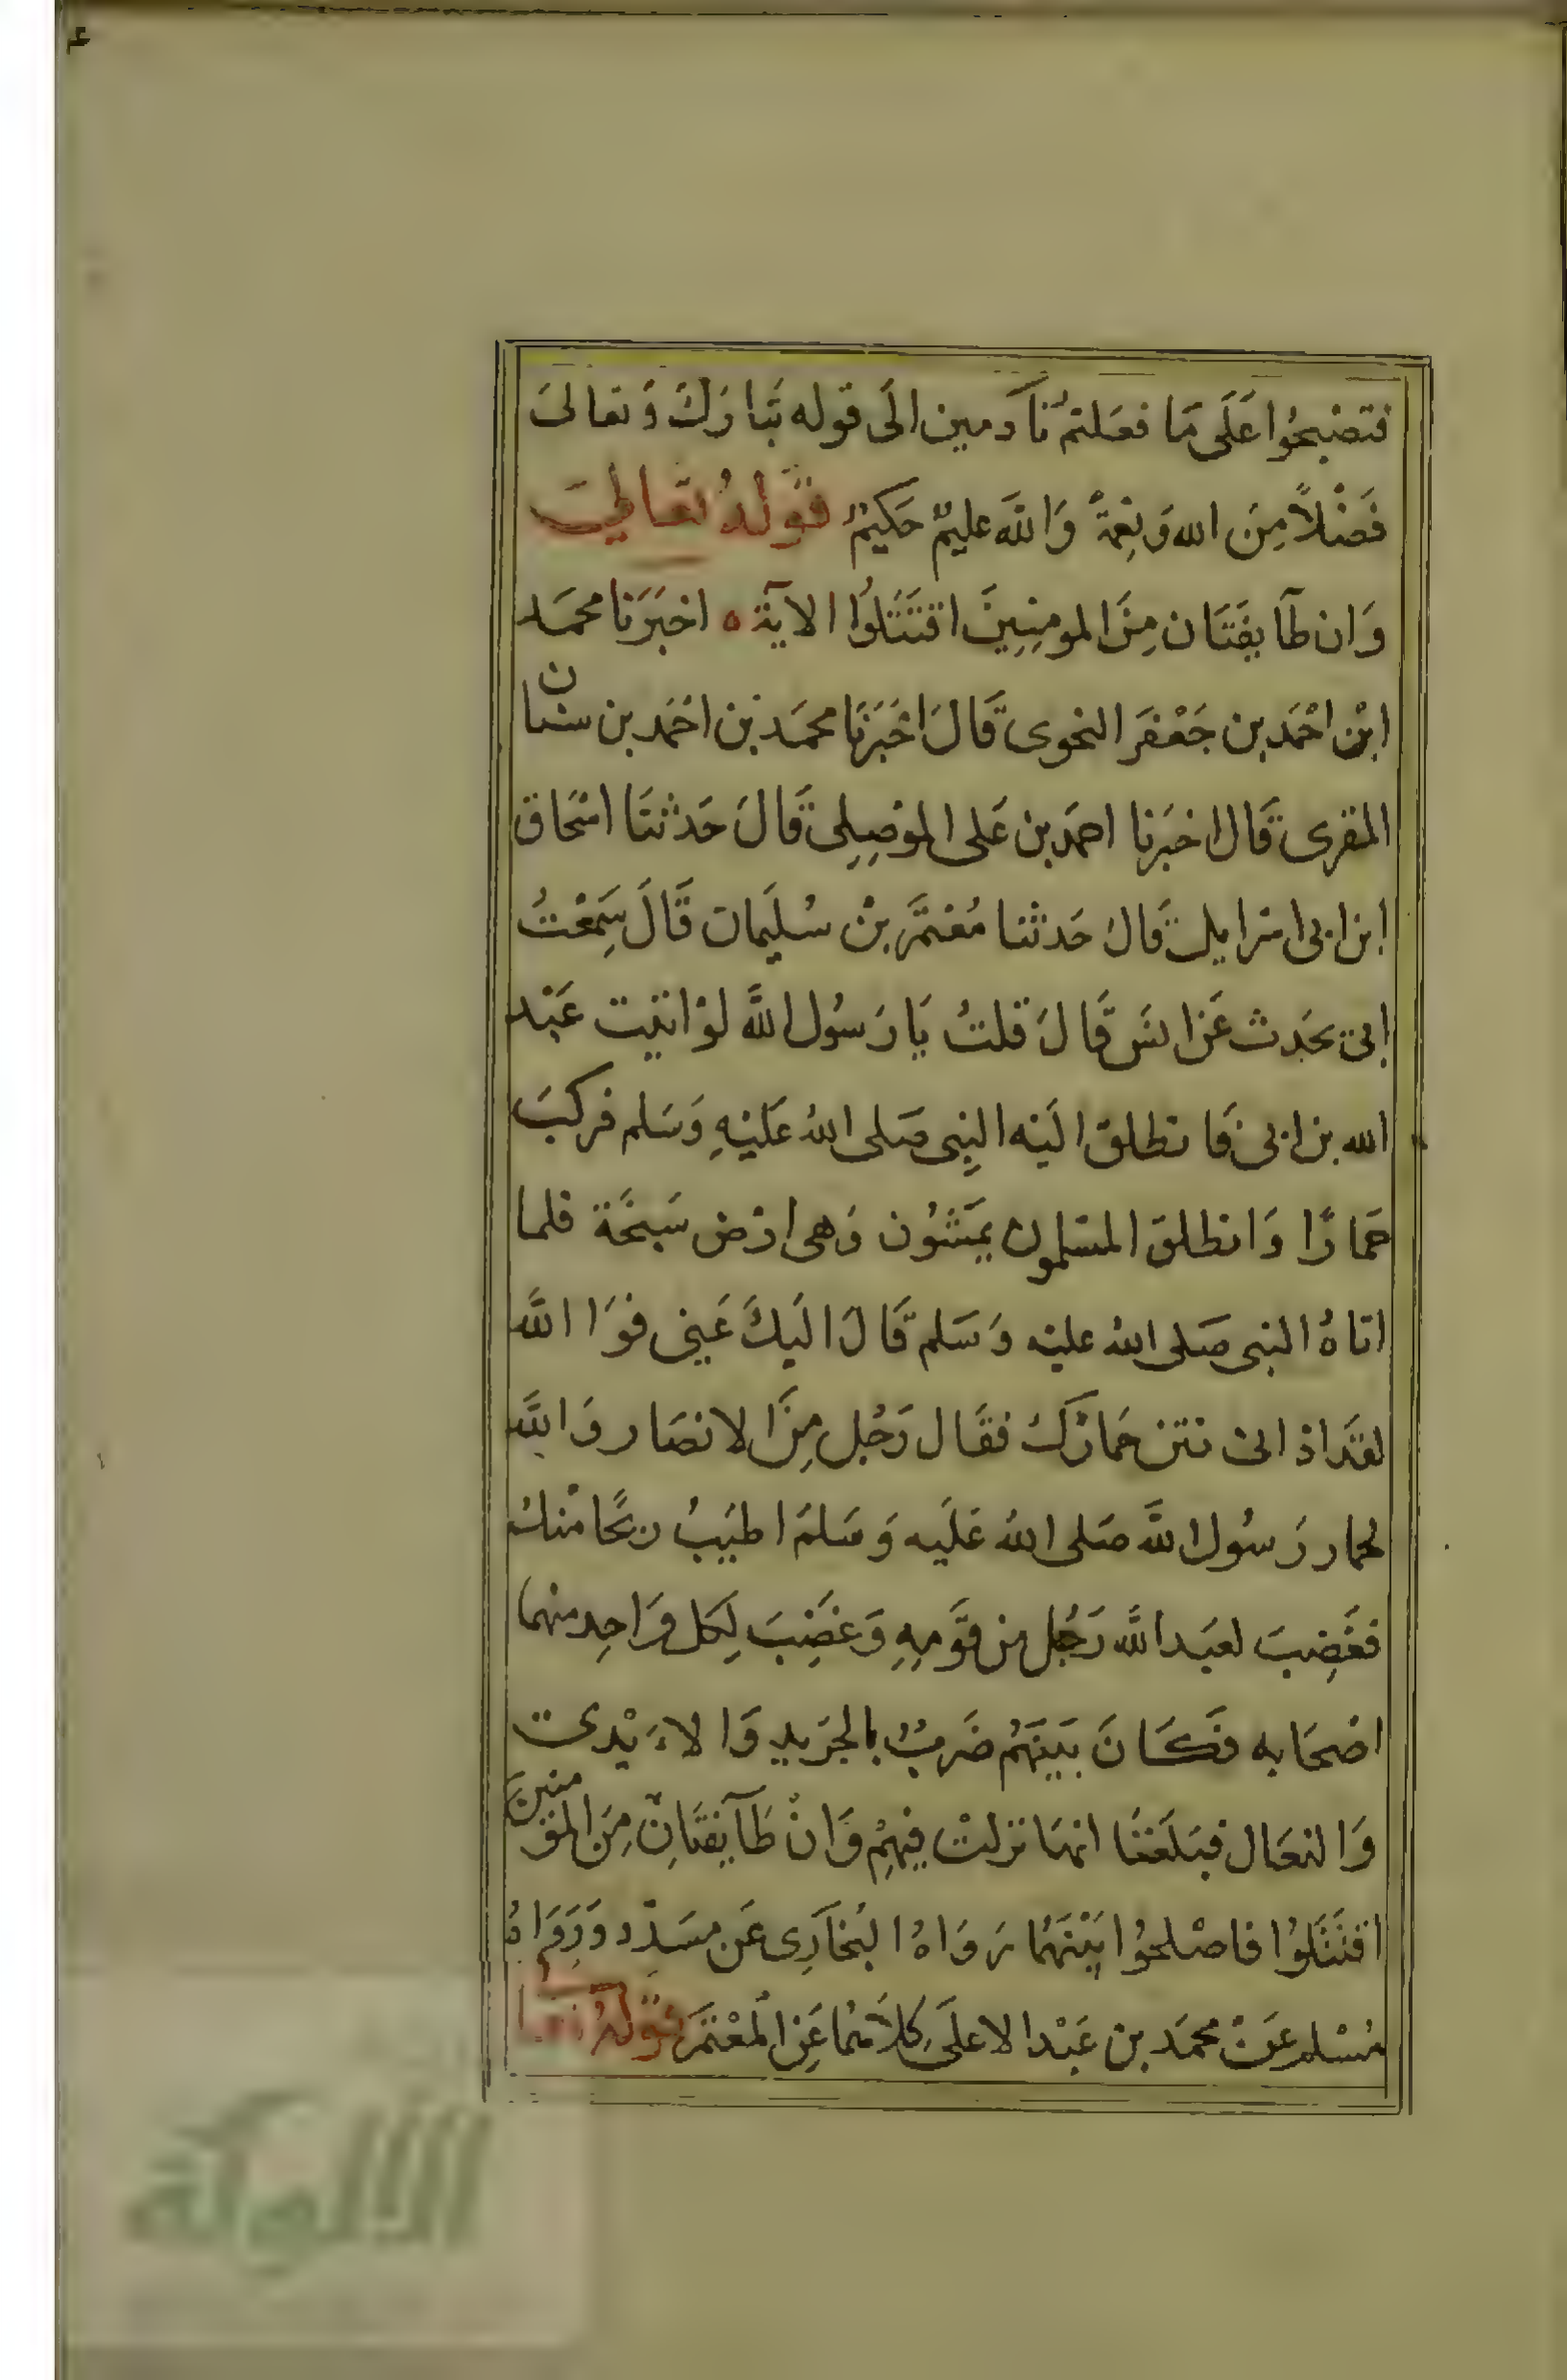 فتصْبحُوا عَلَى مَا فعَلتمْ نَادمين الَى قوله تبَارَكَ وَتعالىَ
فَضْلاً مِنَ الله وَنِعْمَةً وَاللَّه عليمٌ حَكيمٌ قَولهُ تعَالىَ
وَان طَآيفَتَان مِنَ المومِنِينَ اقتَتَلُوا الايَة ه اخبَرَنا محمَد
ابْن احْمَد بن جَعْفَر النحوى قَالَ اخْبَرَنَا محمَد بن احْمَد بن سنان
المقرى قَال اخبَرنا احمَد بن عَلى الموْصِلِى قَالَ حَدثنَا اسْحَاق
ابن ابى اسْرايل قَالَ حَدثنا مُعْتمَر بْن سُليمَان قَالَ سَمِعْتُ
ابى يحَدث عَن انسَ قَالَ قلتُ يَا رَسُول اللَّه لوْ اتيْت عَبْد
الله بن ابى فَانطلق الَيْه النبِى صَلى اللهُ عَلَيْهِ وَسَلم فركبَ
حمَارًا وَانطلق المسْلمون يمَشُون وَهى ارْض سَبخَة فلما
اتاهُ النبى صَلى اللهُ عليْه وَسَلم قَالَ الَيكَ عَنِى فوَا اللَّه
لقَد اذانى نتن حمَارُكَ فقَال رَجُل مِنَ الانصَار وَاللَّه
لحمار رَسُول اللَّه صَلى اللهُ عَلَيه وَسَلمَ اطيَبُ ريحًا مْنكَ
فغَضِبَ لعبَد اللَّه رَجُل من قَومِهِ وَغضِبَ لِكل وَاحِد منهما
اصْحَابه فَكَانَ بَينَهُم ضَربٌ بالجَريد وَالايْدى
وَالنعَال فبَلَغنَا انهَا نزلتْ فِيهِمْ وَانْ طَآيفتَانِ مِنَ المؤمنينَ
اقتَتَلُوا فاصْلحُوا بَيْنَهُمَا رَوَاهُ البُخَارِى عَن مسَدد وَرَوَاهُ
مُسْلم عَنْ محمَد بن عَبْد الاعلَى كلَاهُمَا عَن المعْتمَر قولهُ تعا
الألوكة